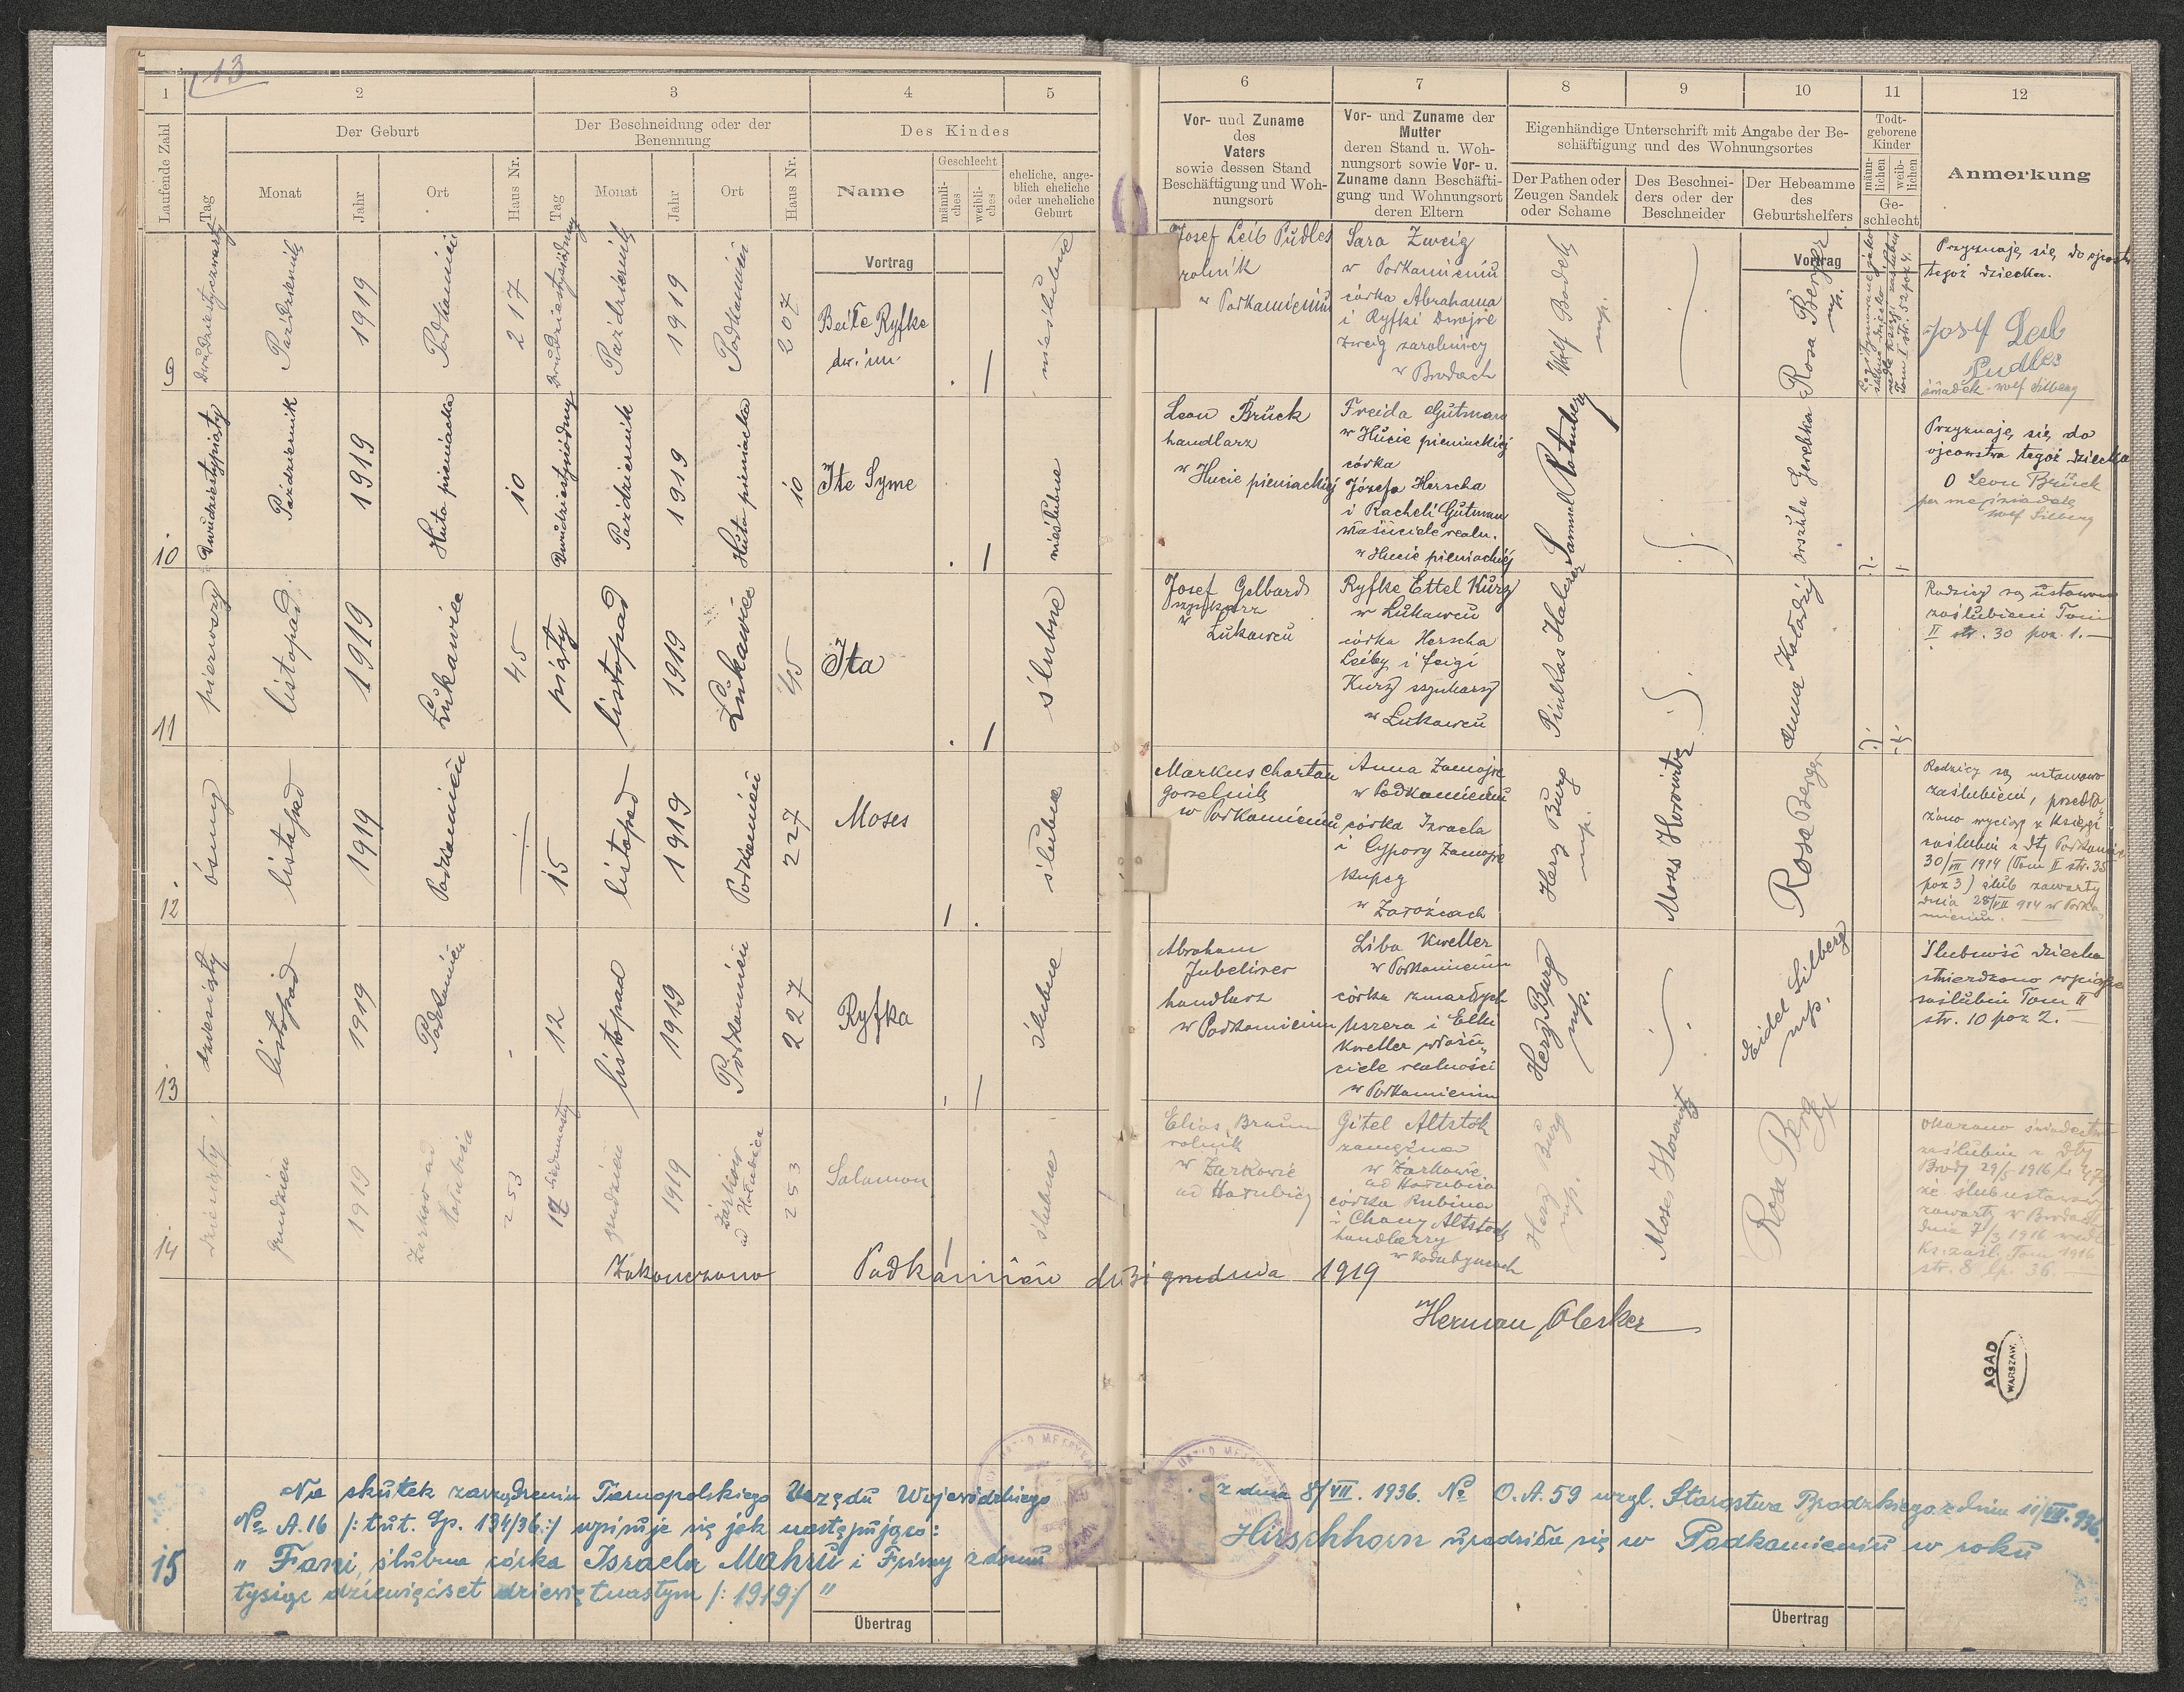 13
1
2
3
4
5
6
7
8
9
10
11
12
Laufende Zahl
Der Geburt
Der Beschneidung oder der
Benennung
Des Kindes
Tag
Monat
Jahr
Ort
Haus Nr.
Tag
Monat
Jahr
Ort
Haus Nr.
Name
Geschlecht
männli-
ches
weibli-
ches
eheliche, ange-
blich eheliche
oder uneheliche
Geburt
Vor- und Zuname
des
Vaters
sowie dessen Stand
Beschäftigung und Woh-
nungsort
Vor- und Zuname der
Mutter
deren Stand u. Woh-
nungsort sowie Vor- u.
Zuname dann Beschäfti-
gung und Wohnungsort
deren Eltern
Eigenhändige Unterschrift mit Angabe der Be-
schäftigung und des Wohnungsortes
Der Pathen oder
Zeugen Sandek
oder Schame
Des Beschnei-
ders oder der
Beschneider
Der Hebeamme
des
Geburtshelfers
Todt-
geborene
Kinder
männ-
lichen
weib-
lichen
Ge-
schlecht
Anmerkung
Vortrag
Vortrag
9
Dwudziestyczwarty
Październik
1919
Podkamień
217
Dwudziestysiódmy
Październik
1919
Podkamień
207
Beile Ryfke
dw. im.
nieślubne
Josef Leib Pudles
rolnik
w Podkamieniu
Sara Zweig
w Podkamieniu
córka Abrahama
i Ryfki Dwojre
Zweig zarobnicy
w Brodach
Wolf Bodek
mp.
Rosa Berger
mp.
Przyznaję się do ojcostwa
tegoż dziecka.
Josef Leib
Pudles
świadek Wolf Silberg
10
Dwudziestypiąty
Październik
1919
Huta pieniacka
10
Dwudziestysiódmy
Październik
1919
Huta pieniacka
10
Ite Syme
nieślubne
Leon Brück
handlarz
w Hucie pieniackiej
Freida Gutman
w Hucie pieniackiej
córka
Józefa Herscha
i Racheli Gutman
właściciele realn.
w Hucie pieniackiej
Samuel Rotenberg
Przyznaję się do
ojcowstwa tegoż dziecka
O Leon Brück
Wolf Silberg
11
pierwszy
listopad
1919
Łukawiec
45
piąty
listopad
1919
Łukawiec
45
Ita
ślubne
Josef Gelbard
szynkarz
w
Łukawcu
Ryfke Ettel Kurz
w Łukawcu
córka Herscha
Leiby i Feigi
Kurz szynkarz
w Łukawcu
Pinkas Halerer
Anna Kołodziej
Rodzice są ustawowo
zaślubieni Tom
II str. 30 poz. 1.
12
ósmy
listopad
1919
Podkamień
15
listopad
1919
Podkamień
227
Moses
ślubne
Markus Chartan
gorzelnik
w Podkamieniu
Anna Zamojre
w Podkamieniu
córka Izraela
i Cypory Zamojre
kupcy
w Załoźcach
Herz Burg
mp.
Moses Horowitz
Rosa Berger
Rodzice są ustawowo
zaślubieni, przedło-
żono wyciąg z księgi
zaślubin z dtg Podkamień
30/VII 1914 (Tom II str. 35
poz 3) ślub zawarty
dnia 28/VII 914 w Podka-
mieniu.
13
dziesiąty
listopad
1919
Podkamień
12
listopad
1919
Podkamień
227
Ryfka
ślubne
Abraham
Jubelirer
handlarz
w Podkamieniu
Liba Kweller
w Podkamieniu
córka zmarłych
Uszera i Elki
Kweller właści-
ciele realności
w Podkamieniu
Herz Burg
mp.
Eidel Silberg
mp.
Ślubność dziecka
stwierdzono w księdze
zaślubin Tom II
str. 10 poz 2.
14
dziesiąty
grudzień
1919
Żarków ad
Hołubica
253
17
siedmnasty
grudzień
1919
Żarków
ad Hołubica
253
Salamon
ślubne
Elias Braun
rolnik
w Żarkowie
ad Hołubicy
Gitel Altstok
zamężna
w Żarkowie
ad Hołubica
córka Rubina
i Chany Altstok
handlarzy
Herz Burg
mp.
Moses Horowitz
Rosa Berger
Okazano świadectwo
zaślubin z dtg
Brody 29/5 1916
że ślub ustawowy
zawarty w Brodach
dnia 7/3 1916
Ks. zaśl. Tom 1916
str. 8 lp. 36.
Zakończono Podkamień dn 31 grudnia 1919
Herman Olesker
AGAD
WARSZAWA
Na skutek zarządzenia Tarnopolskiego Urzędu Wojewódzkiego z dnia 8/VII. 1936. No O.A.59 wzgl. Starostwa Brodzkiego z dnia 11/VII. 936.
No A.16 /:tut. Lp. 134/36:/ wpisuje się jak następująco:
15 „Fani, ślubna córka Israela Mahru i Feiny z domu Hirschhorn urodziła się w Podkamieniu w roku
tysiąc dziewięćset dziewiętnastym /:1919:/ "
Übertrag
Übertrag